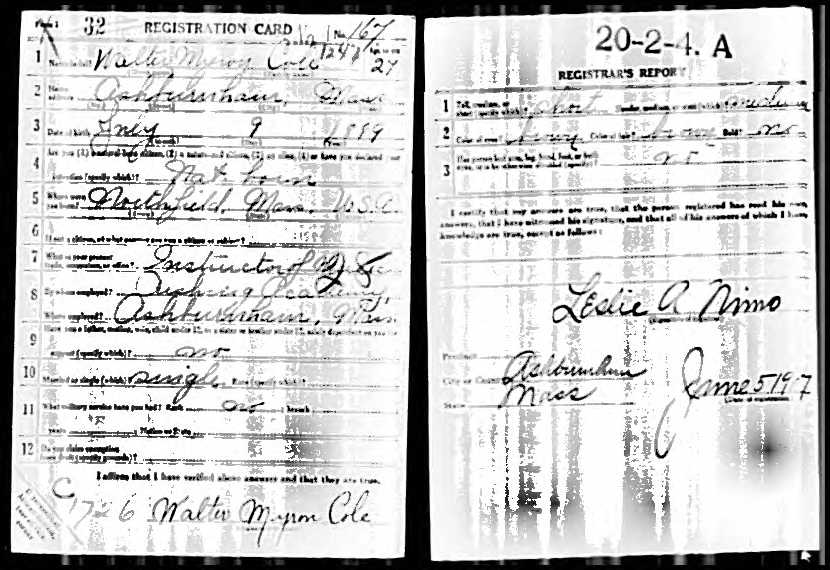 Form 1 32 REGISTRATION CARD No. 167
1 Name in full Walter Myron Cole Age, in yrs 27
2 Home address Ashburnham, Mass
3 Date of birth July 9 1889
4 Are you (1) a natural-born citizen, (2) a naturalized citizen, (3) an alien, (4) or have you declared your
intention (specify which)? Nat born
5 Where were you born? Northfield, Mass. U.S.A.
6 If not a citizen, of what country are you a citizen or subject?
7 What is your present trade, occupation, or office? Instructor of
8 By whom employed? Cushing Academy,
Where employed? Ashburnham, Mass
9 Have you a father, mother, wife, child under 12, or a sister or brother under 12, solely dependent on you for
support (specify which)? no
10 Married or single (which)? single Race (specify which)?
11 What military service have you had? Rank no branch
years Nation or State
12 Do you claim exemption from draft (specify grounds)?
I affirm that I have verified above answers and that they are true.
1726 Walter Myron Cole
20-2-4. A
REGISTRAR'S REPORT
1 Tall, medium, or short (specify which)? short Slender, medium, or stout (which)? medium
2 Color of eyes? brown Color of hair? brown Bald? no
3 Has person lost arm, leg, hand, foot, or both eyes, or is he otherwise disabled (specify)? no
I certify that my answers are true, that the person registered has read his own
answers, that I have witnessed his signature, and that all of his answers of which I have
knowledge are true, except as follows:
Leslie A Nimo
Precinct
City or County Ashburnham
State Mass
June 5 1917
(Date of registration)